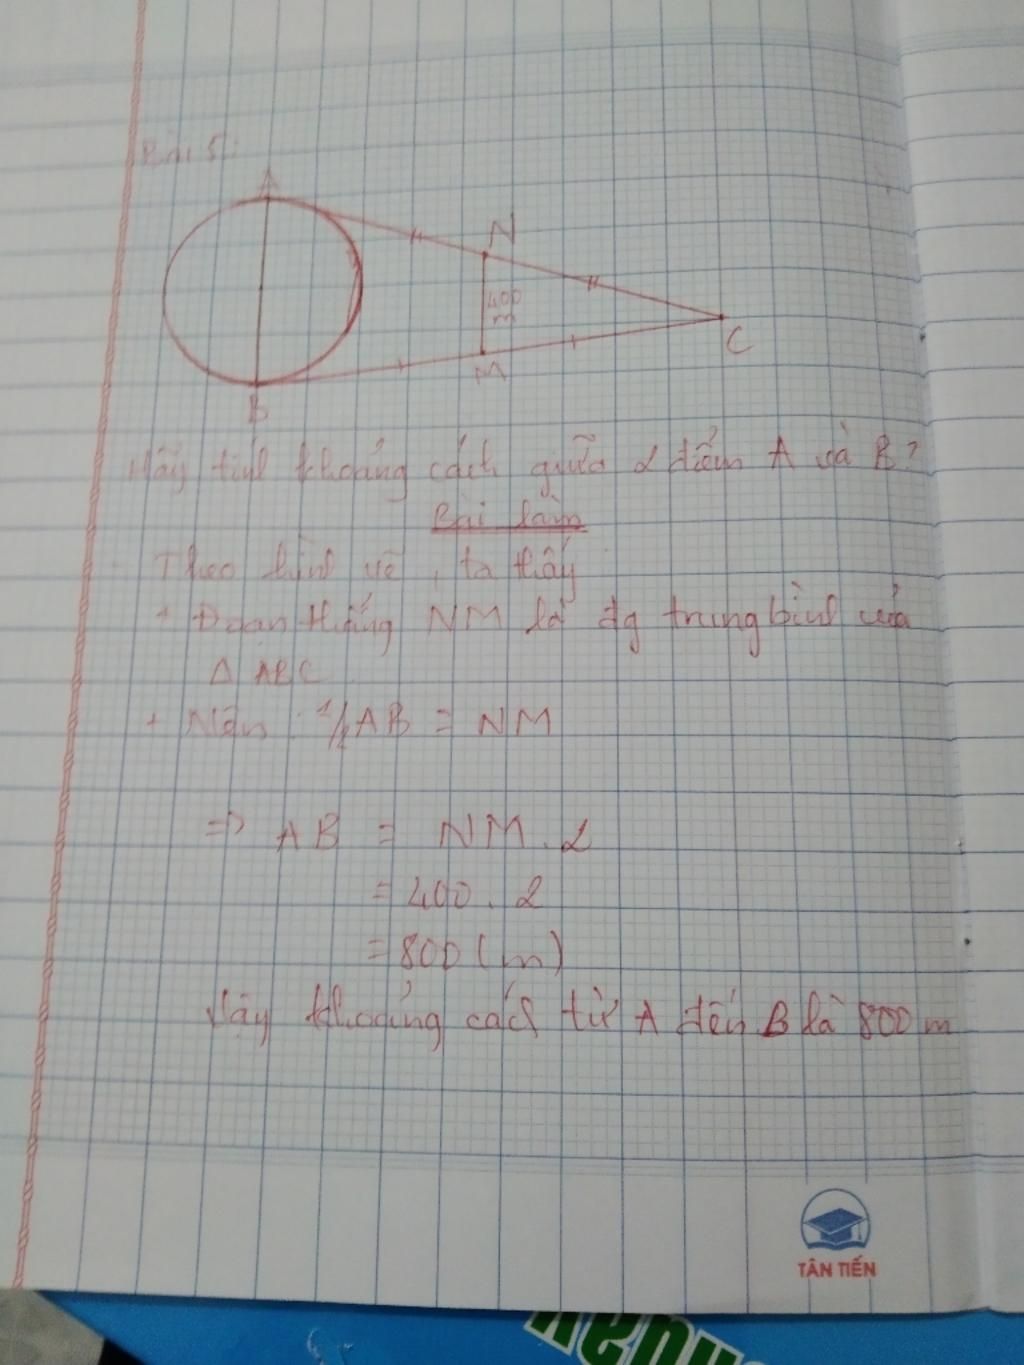 Bài 5:
A
N
400
m
C
M
B
Hãy tính khoảng cách giữa 2 điểm A và B?
Bài làm
Theo hình vẽ, ta thấy
+ Đoạn thẳng NM là đg trung bình của
Δ ABC
+ Nên: 1/2 AB = NM
=> AB = NM . 2
= 400 . 2
= 800 (m)
Vậy khoảng cách từ A đến B là 800 m
TÂN TIẾN